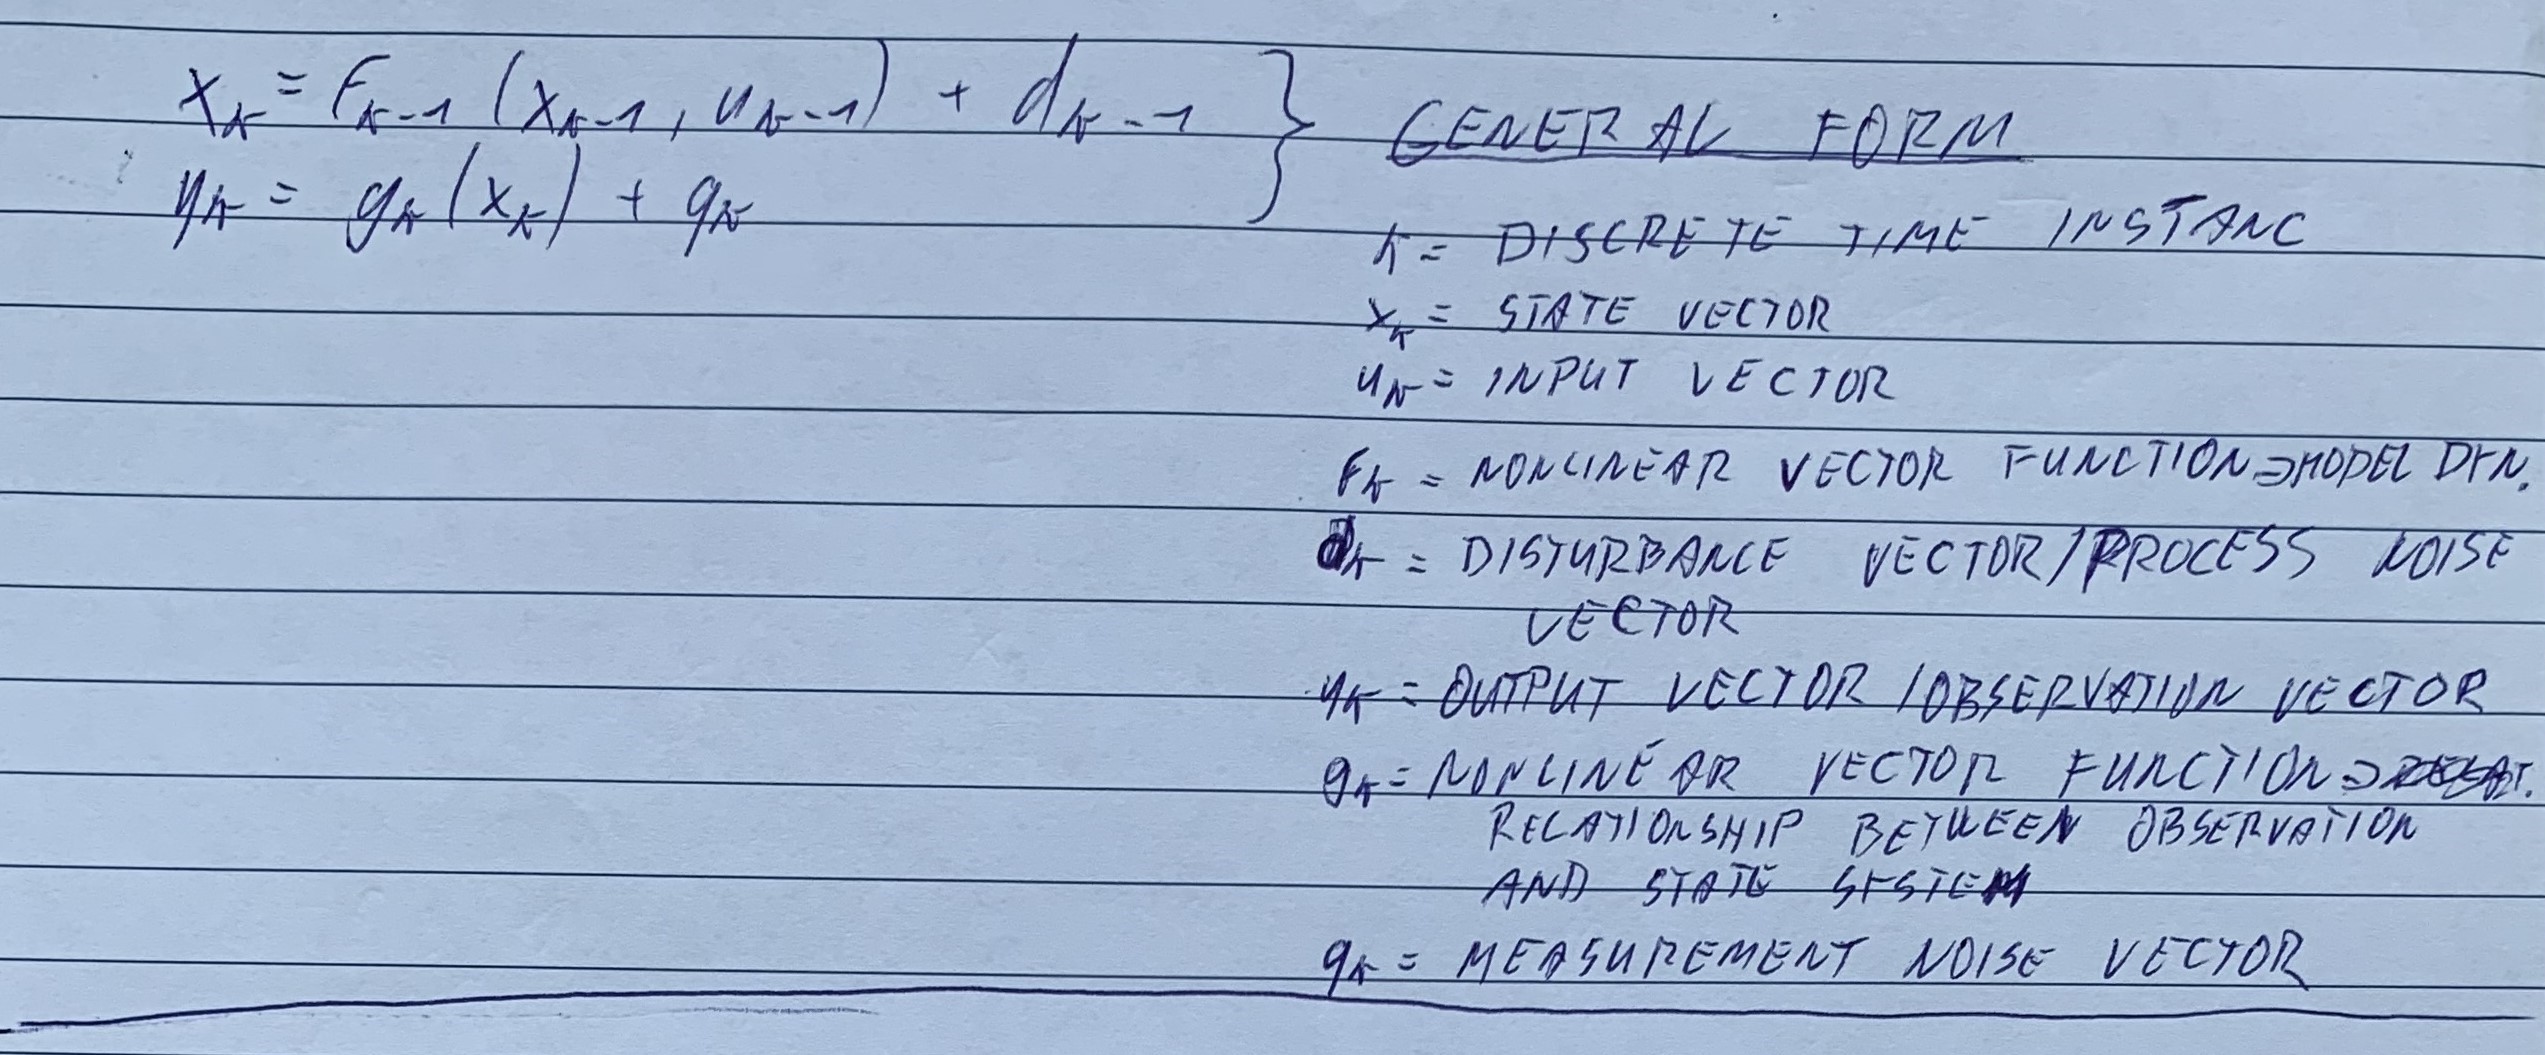 x_k = F_{k-1} (x_{k-1}, u_{k-1}) + d_{k-1} } GENERAL FORM
y_k = g_k (x_k) + q_k
k = DISCRETE TIME INSTANC
x_k = STATE VECTOR
u_k = INPUT VECTOR
F_k = NONLINEAR VECTOR FUNCTION ⇒ MODEL DYN.
d_k = DISTURBANCE VECTOR/PROCESS NOISE
VECTOR
y_k = OUTPUT VECTOR /OBSERVATION VECTOR
g_k = NONLINEAR VECTOR FUNCTION ⇒
RELATIONSHIP BETWEEN OBSERVATION
AND STATE SYSTEM
q_k = MEASUREMENT NOISE VECTOR